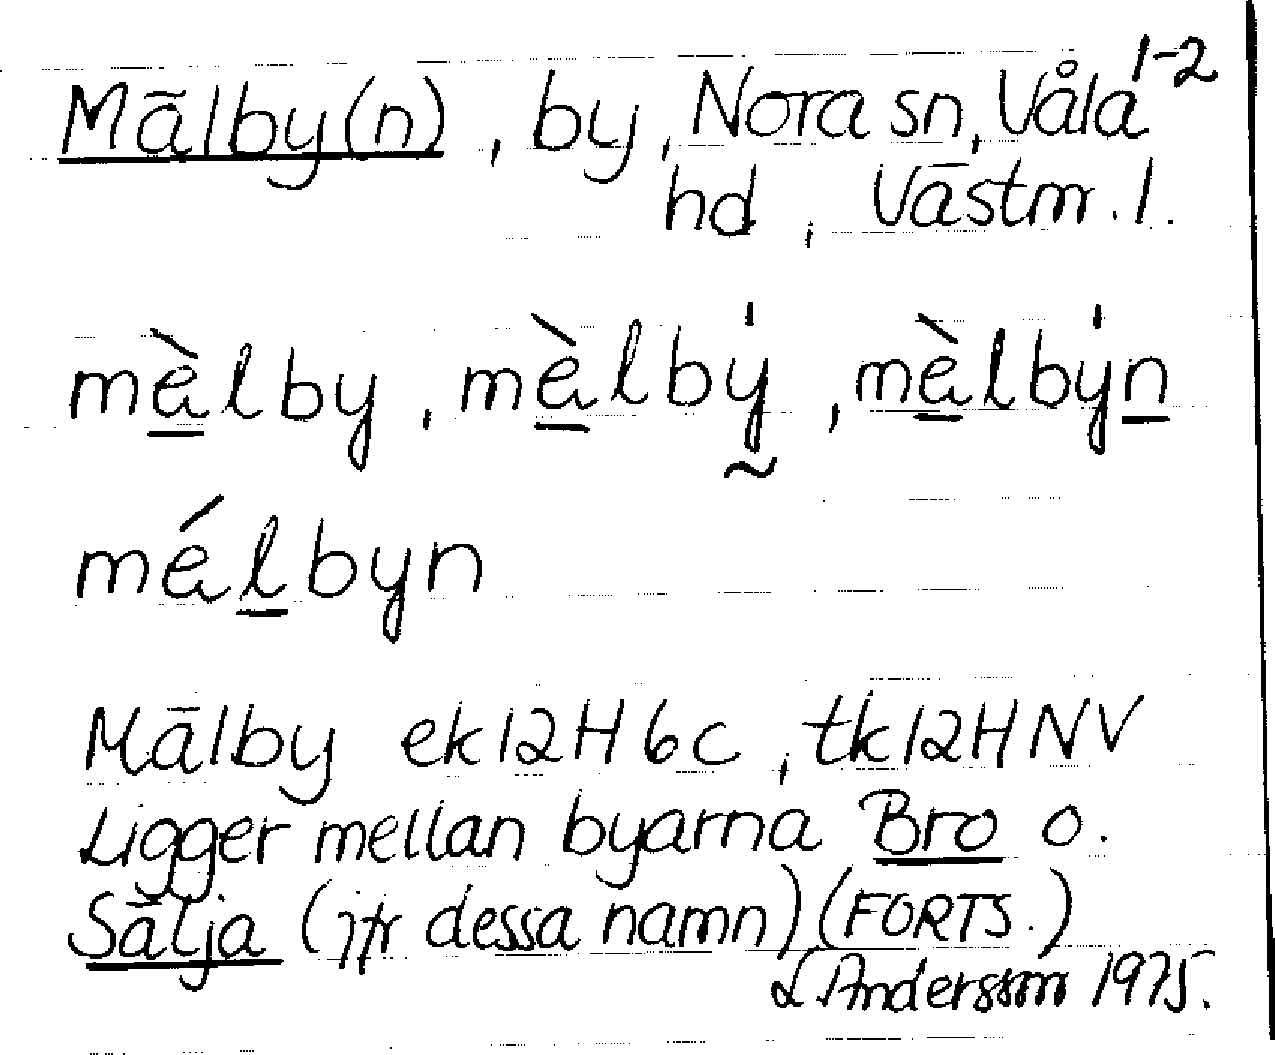 Mälby(n), by, Nora sn, Våla 1-2
hd, Västm. l.
mæ̀lby, mæ̀lbý, mæ̀lbýn
mǽlbyn
Mälby ek12H6c, tk12HNV
Ligger mellan byarna Bro o.
Sälja (jfr dessa namn) (FORTS.)
L Andersson 1975.